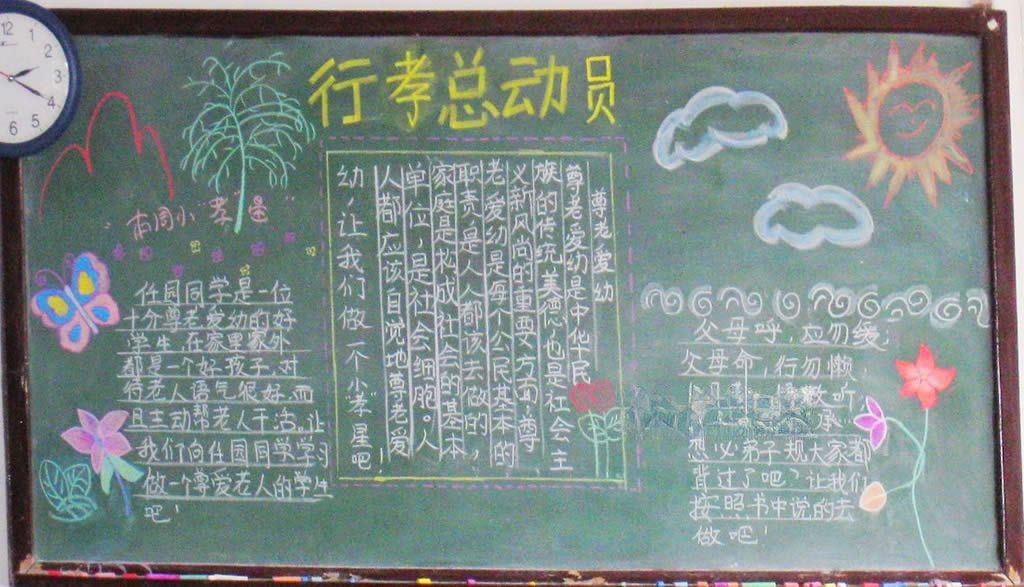 行孝总动员
本周小"孝星
任园同学是一位
十分尊老爱幼的好
学生,在家里家外
都是一个好孩子,对
待老人语气很好,而
且主动帮老人干活。让
我们向任园同学学习
做一个尊爱老人的学生
吧!
尊老爱幼
尊老爱幼是中华民
族的传统美德,也是社会主
义新风尚的重要方面,尊
老爱幼是每个公民基本的
职责,是人人都该去做的,
家庭是构成社会的基本
单位,是社会细胞。人
人都应该自觉地尊老爱
幼,让我们做一个小"孝"星吧!
父母呼,应勿缓,
父母命,行勿懒,
听,
承"
想必弟子规大家都
背过了吧?让我们
按照书中说的去
做吧!
12
1
2
3
4
5
6